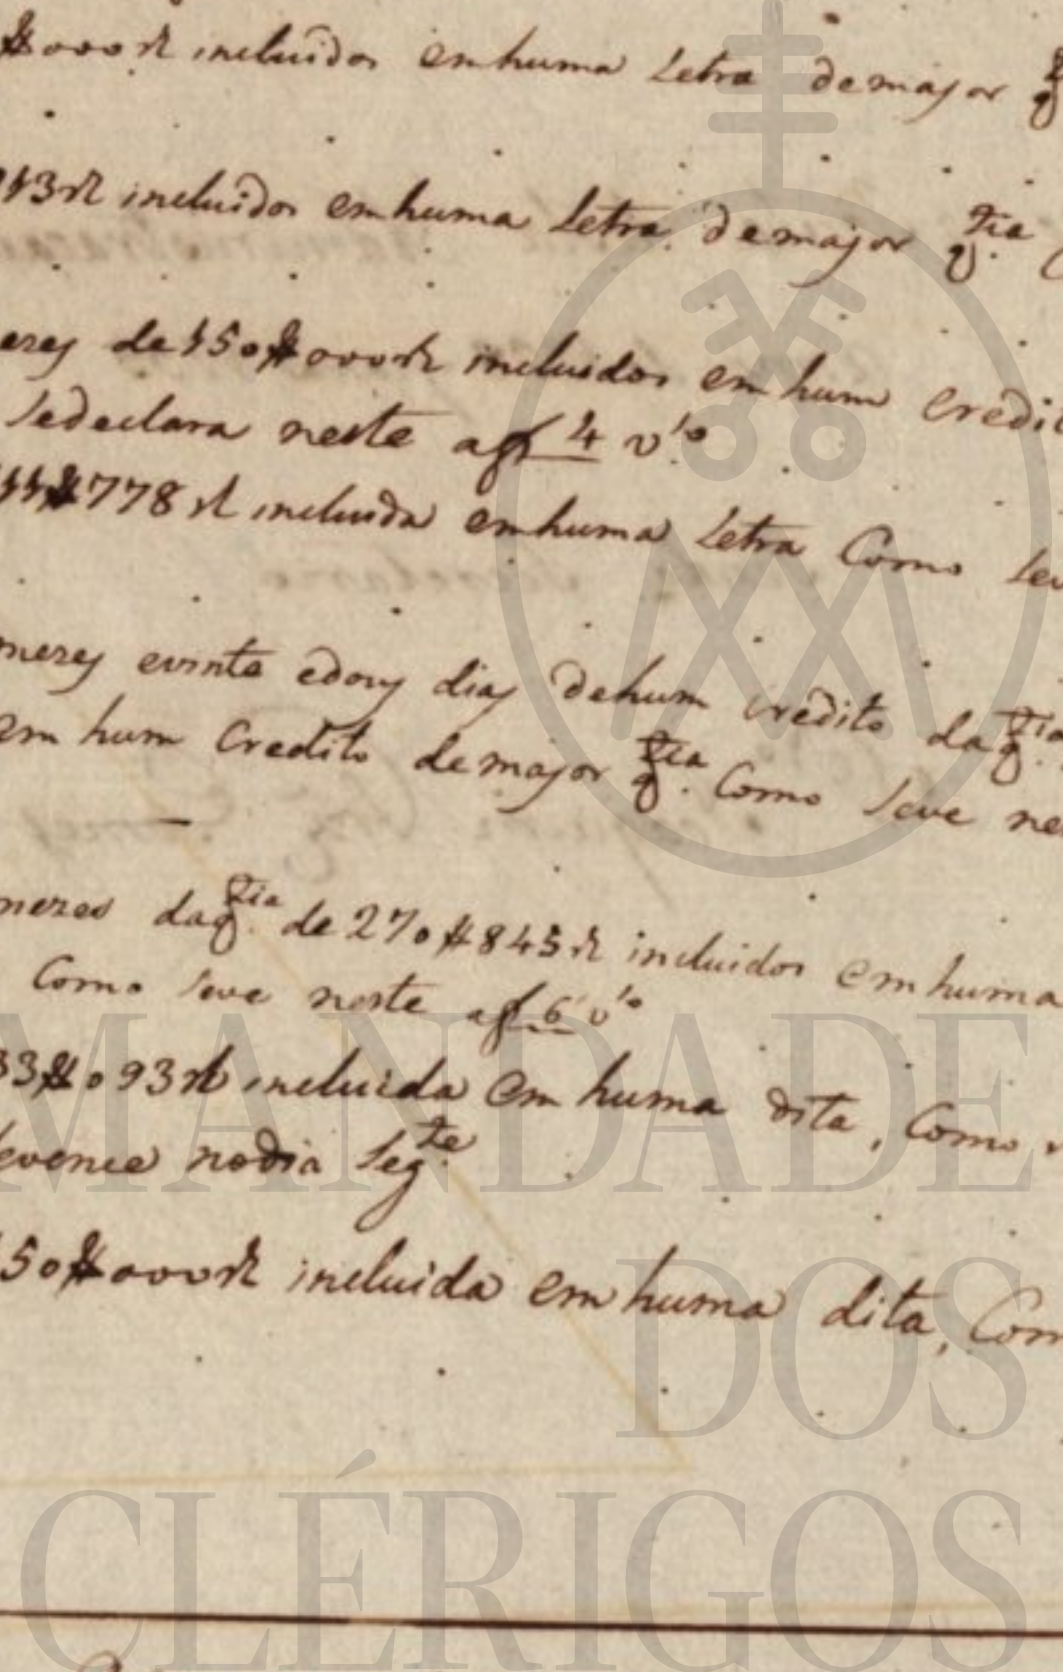 $000 rs incluidos em huma Letra de major q.
113 rs incluidos em huma Letra de major q.tia
ezes de 150$000 rs incluidos em hum Credi
se declara neste a f 4 v.to
11$778 rs incluida em huma Letra Como se v
mezes e vinte e dous dias de hum credito da q.tia
em hum Credito de major q.tia Como se ve ne
mezes da q.tia de 270$845 rs incluidos em huma
Como se ve neste a f 6 v.to
33$093 rs incluida em huma dita, Como
se vence no dia seg.te
50$000 rs incluida em huma dita, Com
MANDADE
DOS
CLÉRIGOS